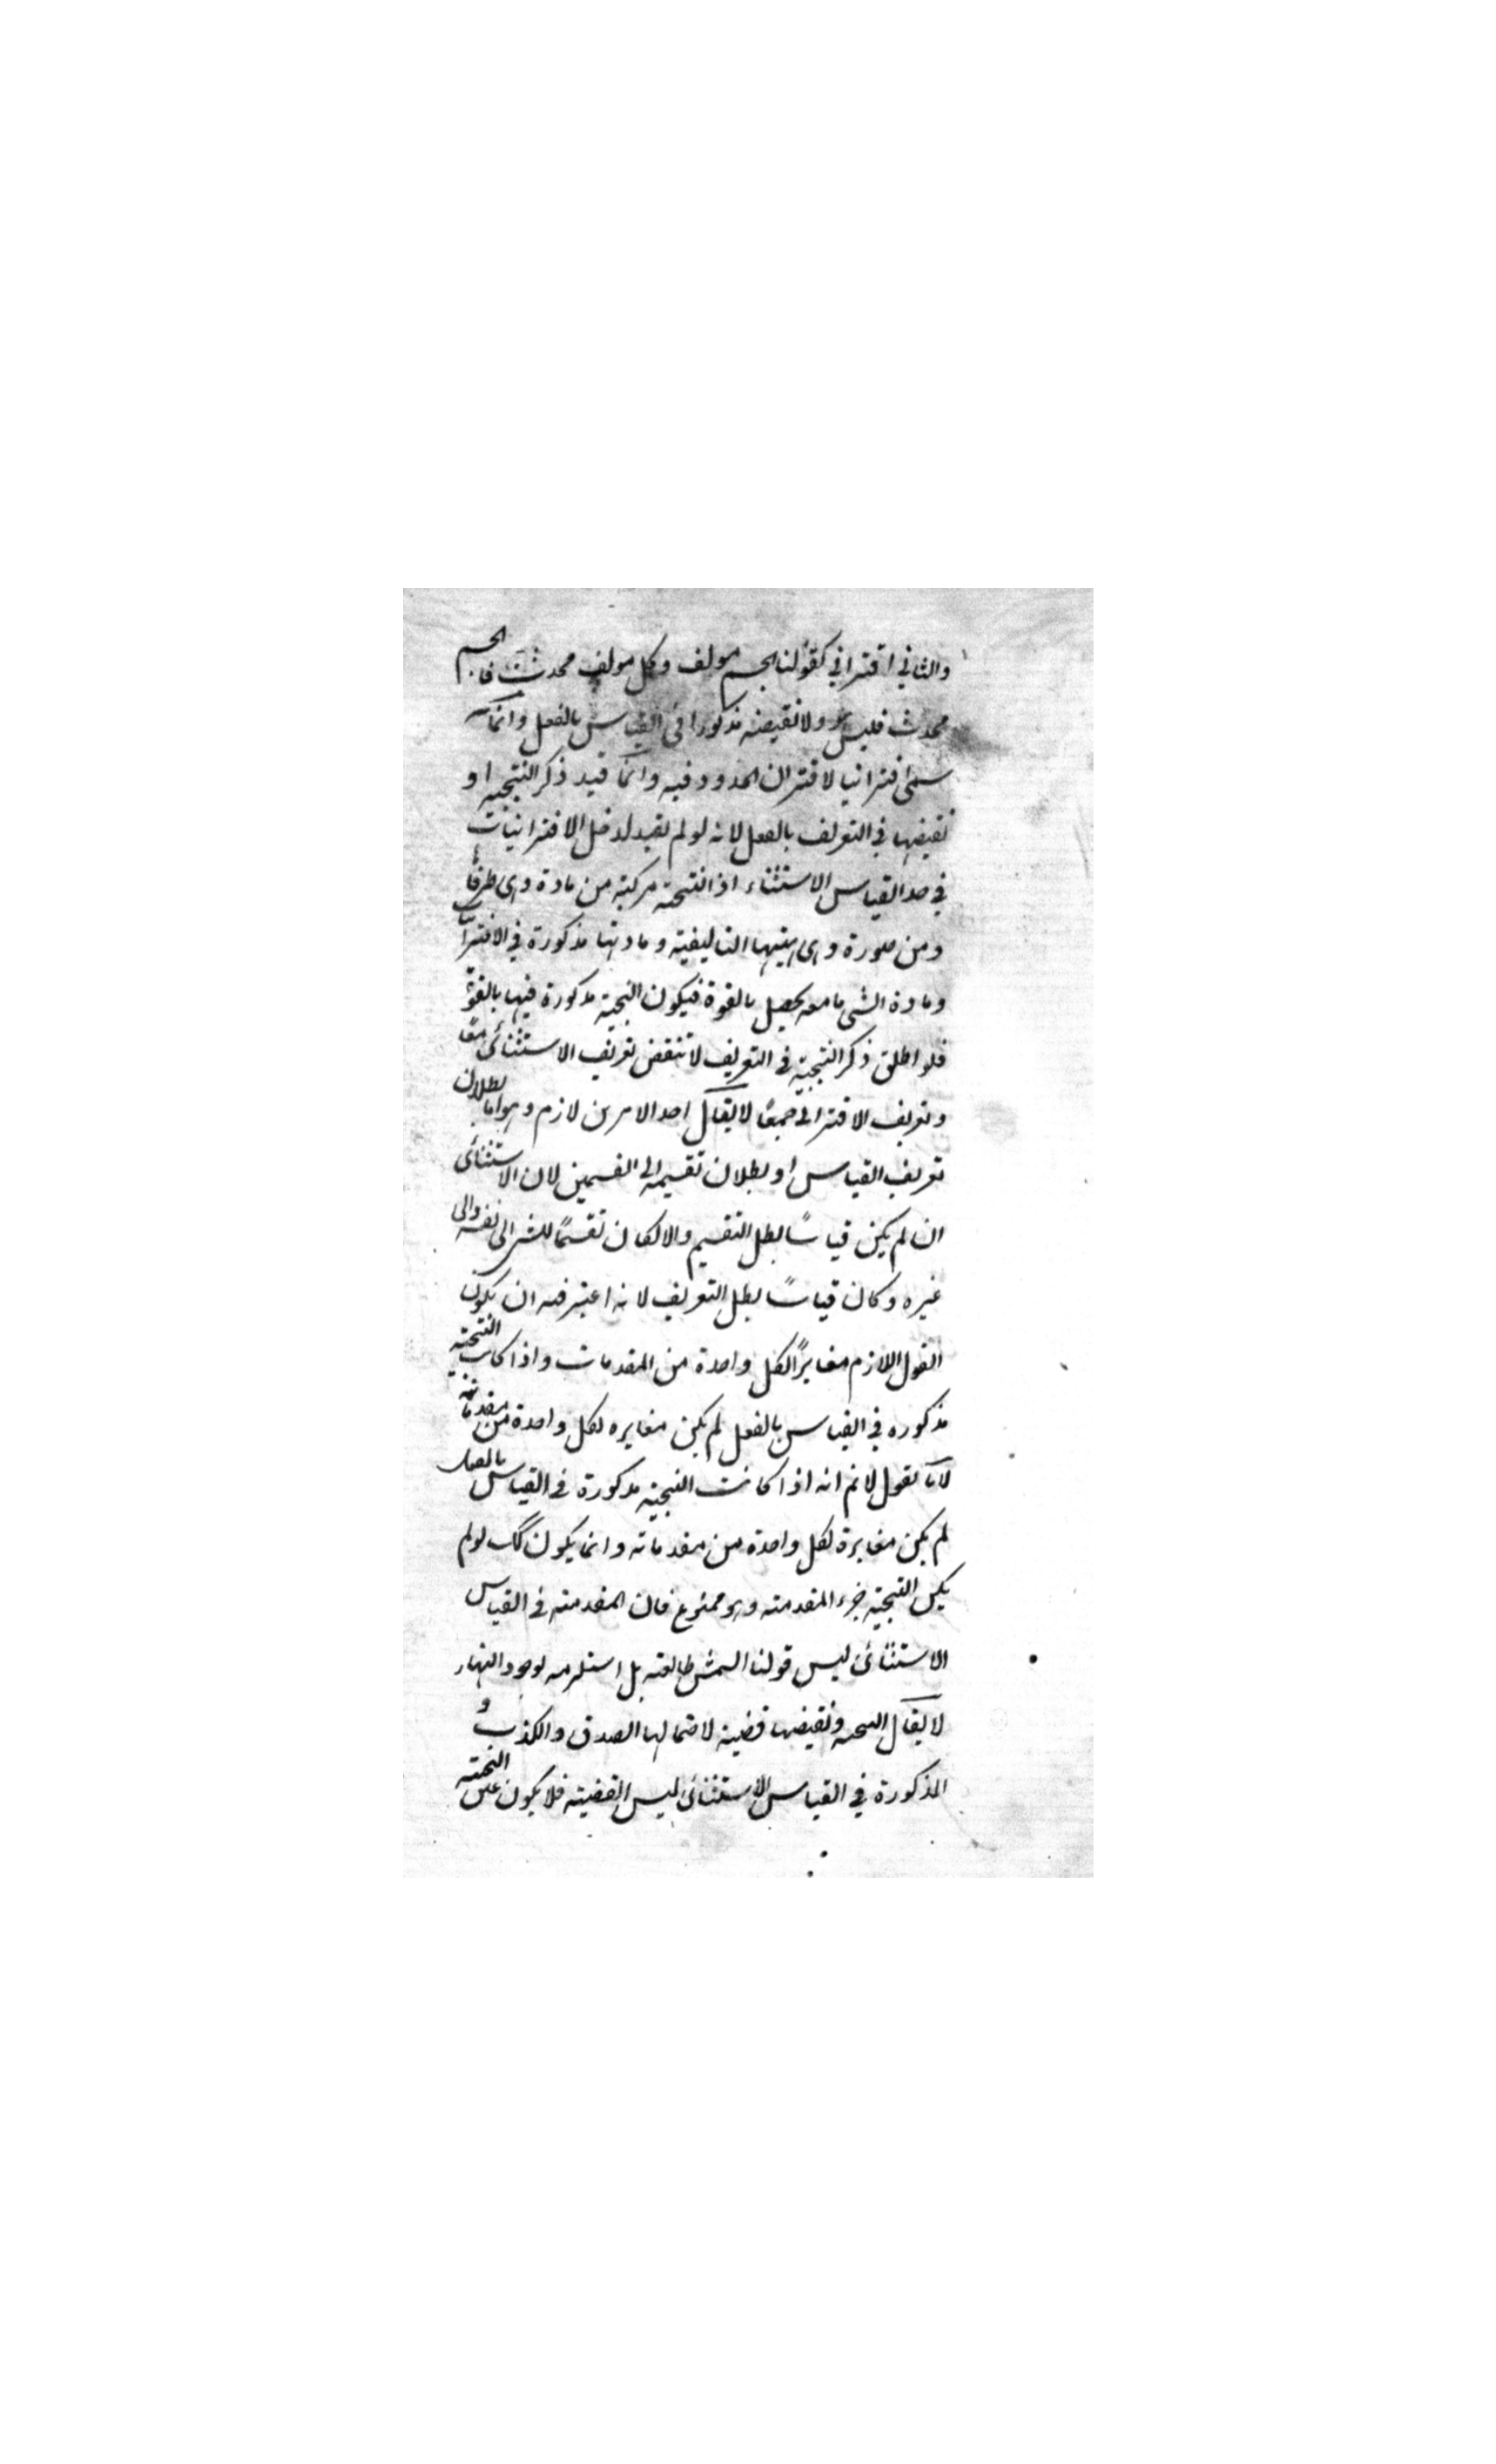 والثاني اقتراني كقولنا الجسم مولف وكل مولف محدث فالجسم
محدث فليس هو ولا نقيضه مذكورا في القياس بالفعل وانما
سمى اقترانيا لاقتران الحدود فيه وانما قيد ذكر النتيجة او
نقيضها في التعريف بالفعل لانه لو لم يقيد لدخل الاقترانيات
في حد القياس الاستثناء اذ النتيجة مركبة من مادة وهى طرفاها
ومن صورة وهى هيئتها التاليفية ومادتها مذكورة في الاقترانيات
ومادة الشى ما معه يحصل بالقوة فيكون النتيجة مذكورة فيها بالقوة
فلو اطلق ذكر النتيجة في التعريف لانتقض تعريف الاستثنائى منعًا
وتعريف الاقترانى جمعًا لا يقال احد الامرين لازم وهو اما بطلان
تعريف القياس او بطلان تقسيمه الى القسمين لان الاستثنائى
ان لم يكن قياسًا بطل التقسيم والا لكان تقسيمًا للشى الى نفسه والى
غيره وكان قياسًا بطل التعريف لانه اعتبر فيه ان يكون
القول اللازم مغايرًا لكل واحدة من المقدمات واذا كانت النتيجة
مذكوره في القياس بالفعل لم يكن مغايره لكل واحدة من مقدماته
لانا نقول لا نم انه اذا كانت النتيجة مذكورة في القياس بالفعل
لم يكن مغايرة لكل واحدة من مقدماته وانما يكون كك لو لم
يكن النتيجة جزء المقدمة وهو ممنوع فان المقدمة في القياس
الاستثنائى ليس قولنا الشمس طالعة بل استلزمه لوجود النهار
لا يقال النتيجة ونقيضها قضية لاحتمالها الصدق والكذب و
المذكورة في القياس الاستثنائى ليس القضية فلا يكون عين النتيجة